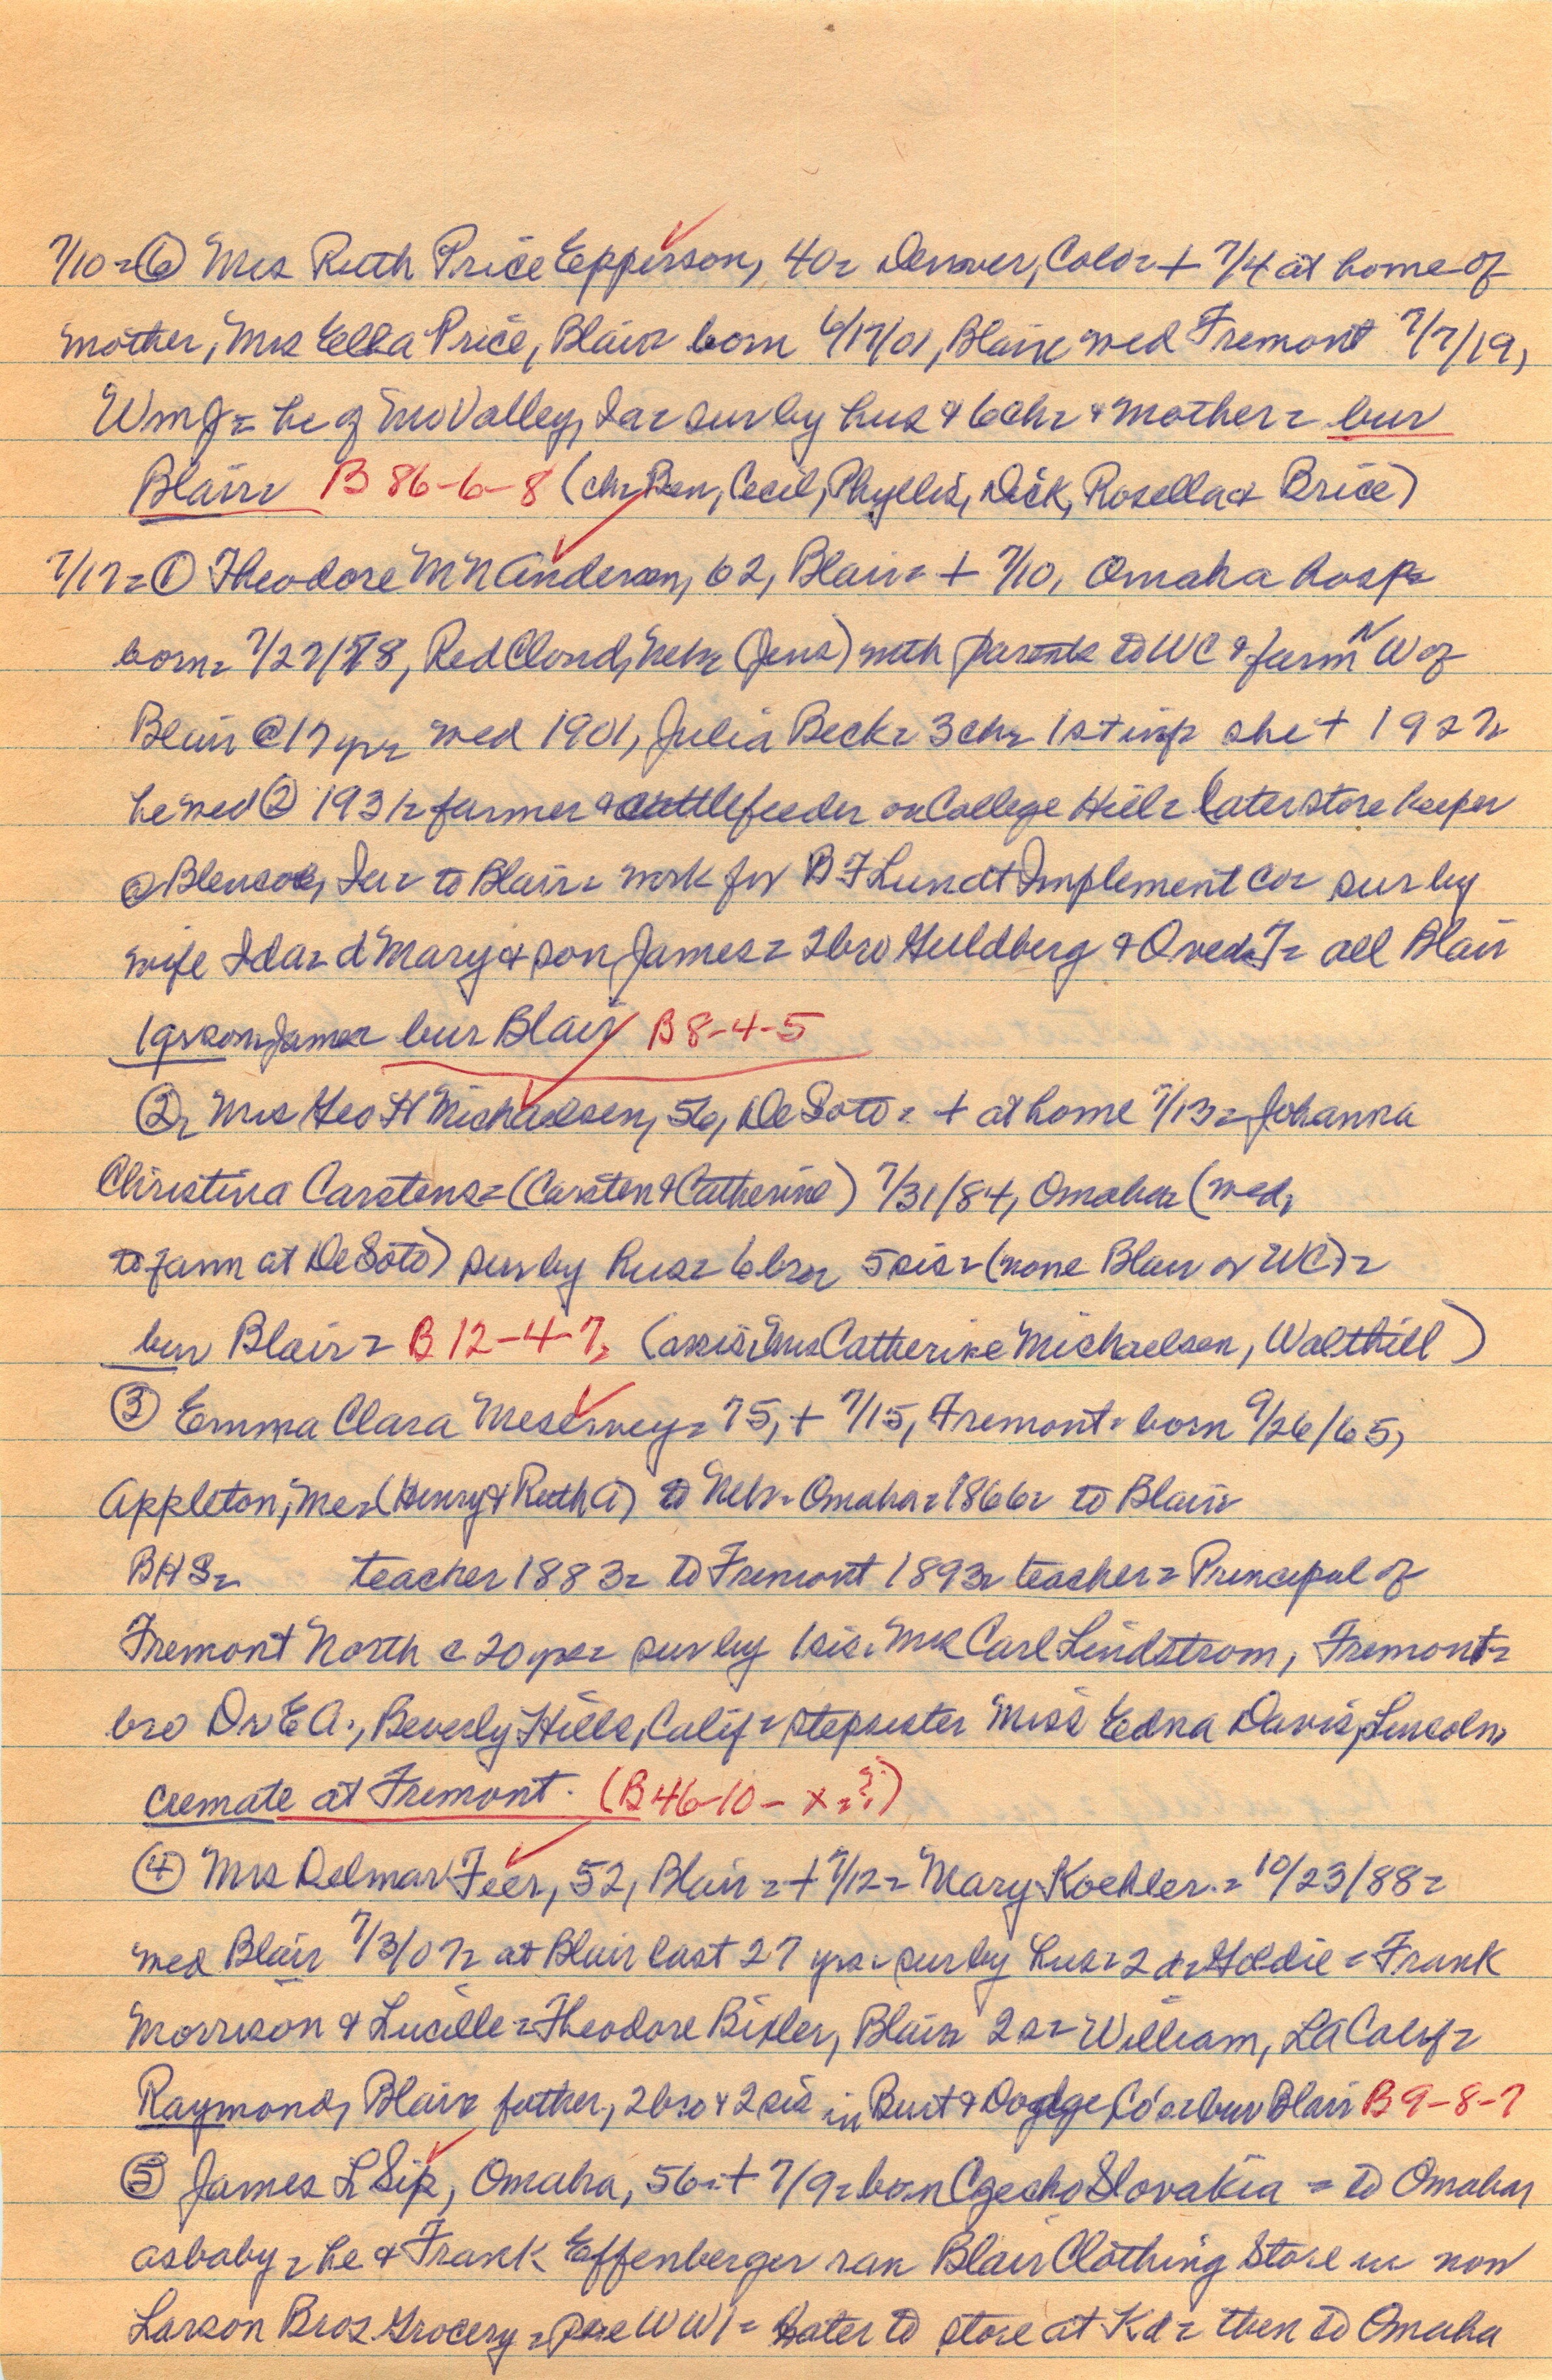 7/10 = ⑥ Mrs Ruth Price Epperson, 40 = Denver, Colo = + 7/4 at home of
mother, Mrs Ella Price, Blair = born 6/17/01, Blair = wed Fremont 7/7/19,
Wm J = he of Mo Valley, Ia = sur by hus & 6 ch = & mother = bur
Blair = B 86-6-8 (ch = Ben, Cecil, Phyllis, Dick, Rosella & Brice)
7/17 = ① Theodore M N Andersen, 62, Blair = + 7/10, Omaha hosp =
born = 7/27/78, Red Cloud, Nebr (Jens) with parents to WC & farm N W of
Blair @ 17 yr = wed 1901, Julia Beck = 3 ch = 1st inf = she + 1927 =
he wed ② 1931 = farmer & cattlefeeder on College Hill = later storekeeper
@ Blencoe, Ia = to Blair = work for B F Lundt Implement Co = sur by
wife Ida = d Mary & son James = 2 bro Guldberg & Oved T = all Blair
1 grson James = bur Blair B 8-4-5
② = Mrs Geo H Michaelsen, 56, De Soto = + at home 7/13 = Johanna
Christina Carstens = (Carsten & Catherine) 7/31/84, Omaha = (wed,
to farm at De Soto) sur by hus = 6 bro = 5 sis = (none Blair or WC) =
bur Blair = B 12-4-7 = (a sis, Mrs Catherine Michaelsen, Walthill)
③ Emma Clara Meservey = 75, + 7/15, Fremont = born 9/26/65,
Appleton, Me = (Henry & Ruth A) to Nebr = Omaha = 1866 = to Blair =
BHS = teacher 1883 = to Fremont 1893 = teacher = Principal of
Fremont North c 20 yrs = sur by 1 sis = Mrs Carl Lindstrom, Fremont =
bro Dr E A., Beverly Hills, Calif = stepsister Miss Edna Davis, Lincoln,
cremate at Fremont. (B 46-10- x = ?)
④ Mrs Delmar Feer, 52, Blair = + 7/12 = Mary Koehler = 10/23/88 =
wed Blair 7/3/07 = at Blair last 27 yrs = sur by hus = 2 d = Goldie = Frank
Morrison & Lucille = Theodore Bixler, Blair = 2 s = William, LA Calif =
Raymond, Blair = father, 2 bro & 2 sis in Burt & Dodge Co's = bur Blair B 9-8-7
⑤ James L Sip, Omaha, 56 = + 7/9 = born Czecho Slovakia = to Omaha,
as baby = he & Frank Effenberger ran Blair Clothing Store in now
Larson Bros Grocery = pre WW1 = later to store at Kd = then to Omaha